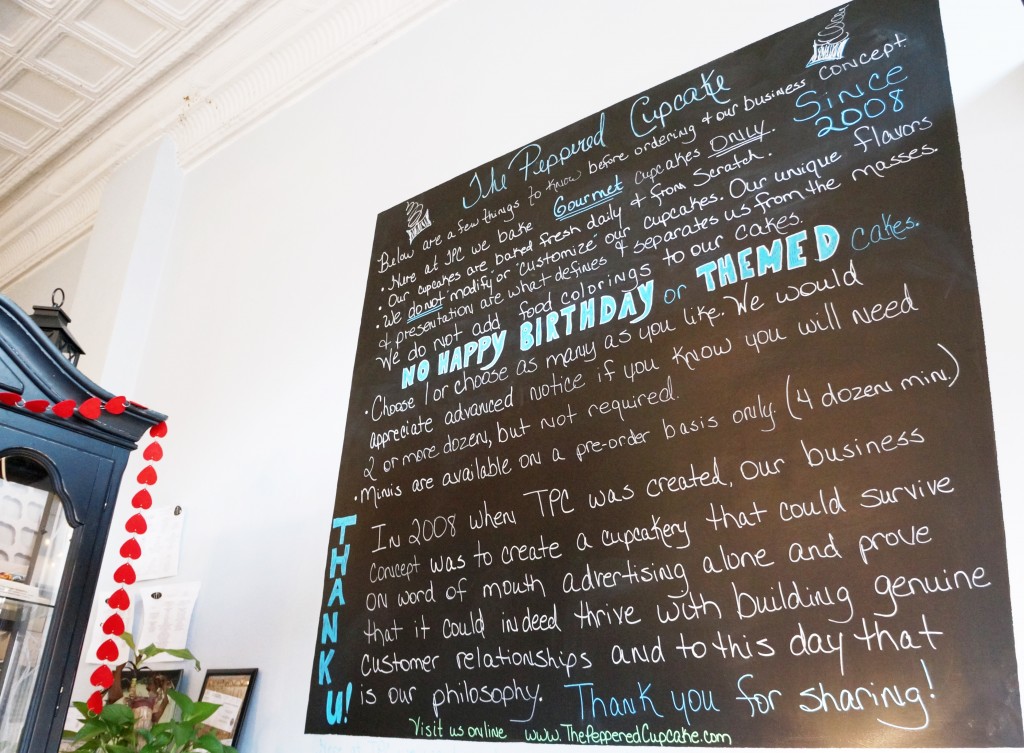 The Peppered Cupcake
Below are a few things to know before ordering & our business concept.
Since
2008
• Here at TPC we bake Gourmet cupcakes ONLY.
• Our cupcakes are baked fresh daily & from scratch.
• We do not "modify" or "customize" our cupcakes. Our unique flavors
& presentation are what defines & separates us from the masses.
We do not add food colorings to our cakes.
NO HAPPY BIRTHDAY or THEMED cakes.
• Choose 1 or choose as many as you like. We would
appreciate advanced notice if you know you will need
2 or more dozen, but not required.
• Minis are available on a pre-order basis only. (4 dozen min.)
THANK U!
In 2008 when TPC was created, our business
concept was to create a cupcakery that could survive
on word of mouth advertising alone and prove
that it could indeed thrive with building genuine
customer relationships and to this day that
is our philosophy. Thank you for sharing!
Visit us online www.ThePepperedCupcake.com